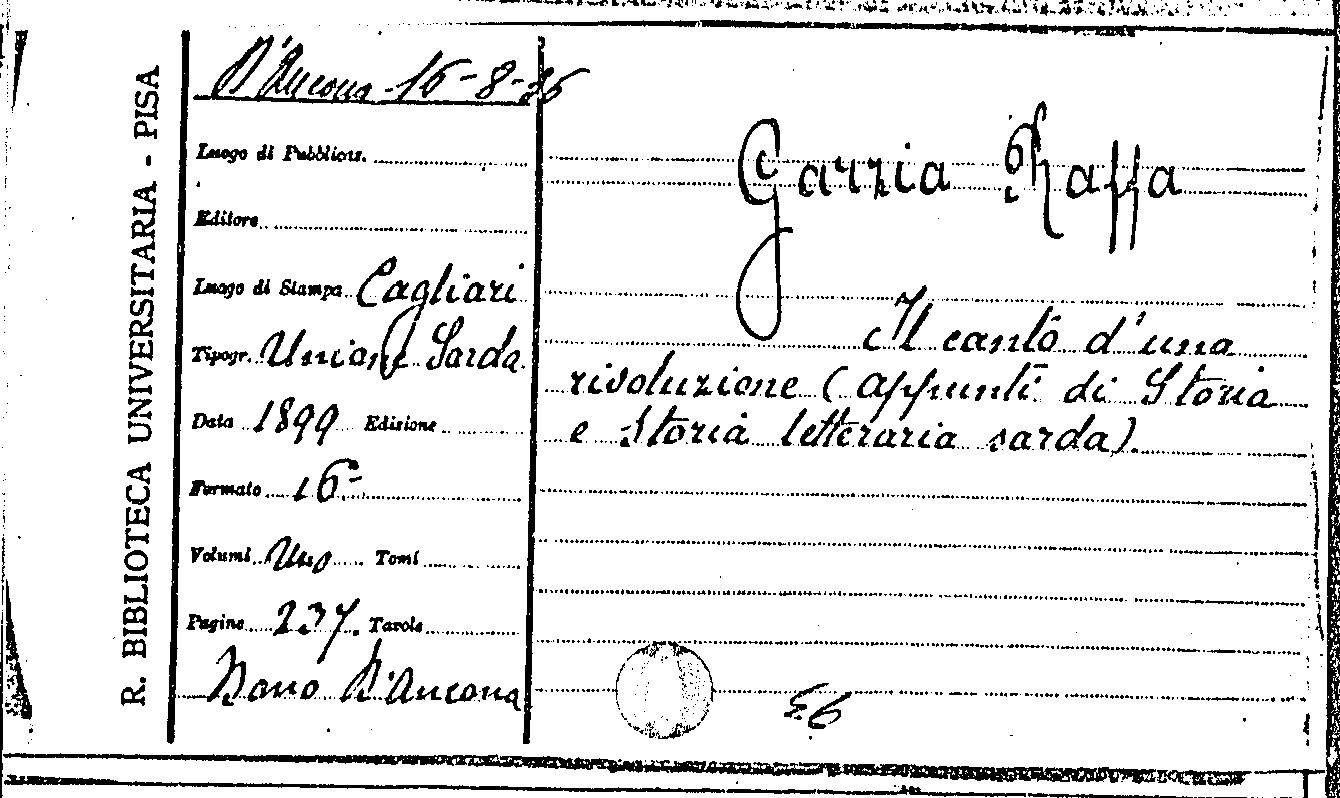 R. BIBLIOTECA UNIVERSITARIA - PISA
D'Ancona 16-8-36
Luogo di Pubblicaz.
Editore
Luogo di Stampa Cagliari
Tipogr. Unione Sarda
Data 1899 Edizione
Formato 16º
Volumi Uno Tomi
Pagine 237. Tavole
Dono D'Ancona
Garzia Raffa
Il canto d'una
rivoluzione (appunti di Storia
e Storia letteraria sarda).